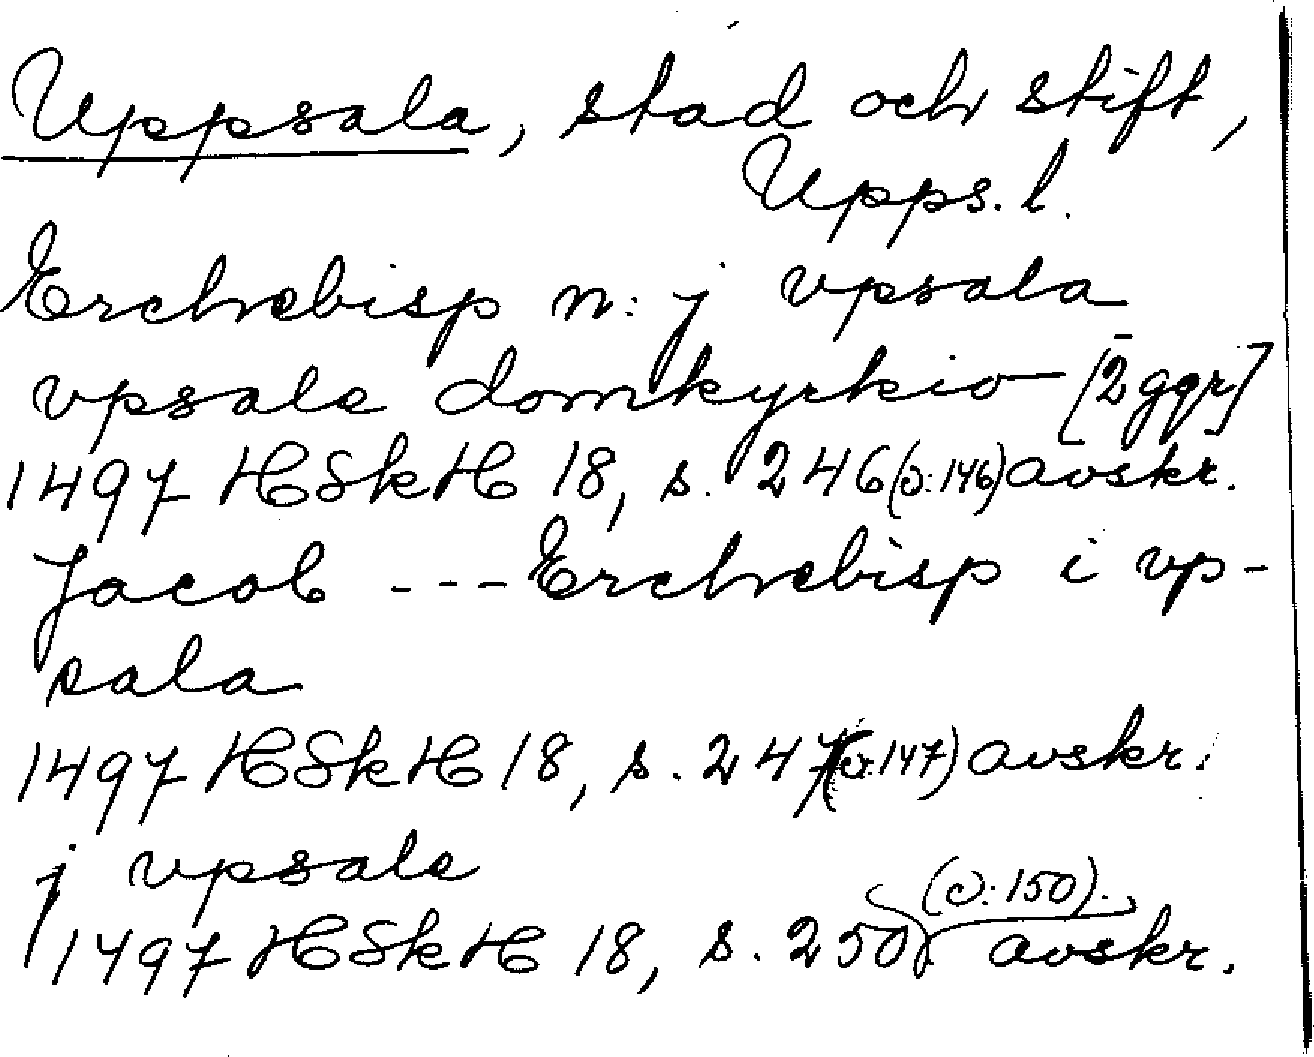 Uppsala, stad och stift,
Upps. l.
Erchebisp n: j vpsala
vpsale domkyrkio [2 ggr]
1497 HSkH 18, s. 246 (ɔ: 146) avskr.
Jacob --- Erchebisp i vp-
sala
1497 HSkH 18, s. 247 (ɔ: 147) avskr.
j vpsale
1497 HSkH 18, s. 250 (ɔ: 150). avskr.